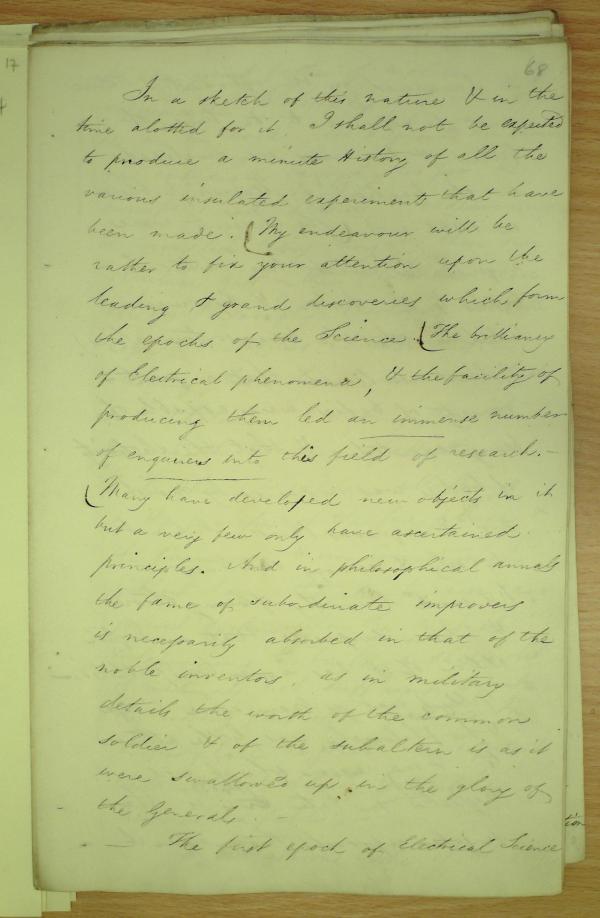 68
17
In a sketch of this nature & in the
time alotted for it I shall not be expected
to produce a minute History of all the
various insulated experiments that have
been made. (My endeavour will be
rather to fix your attention upon the
leading & grand discoveries which form
the epochs of the Science. (The brilliancy
of Electrical phenomena, & the facility of
producing them led an immense number
of enquirers into this field of research. -
(Many have developed new objects in it
but a very few only have ascertained
principles. And in philosophical annals
the fame of subordinate improvers
is necessarily absorbed in that of the
noble inventors, as in military
details the worth of the common
soldier & of the subaltern is as it
were swallowed up in the glory of
the Generals. -
- The first epoch of Electrical Science
tion